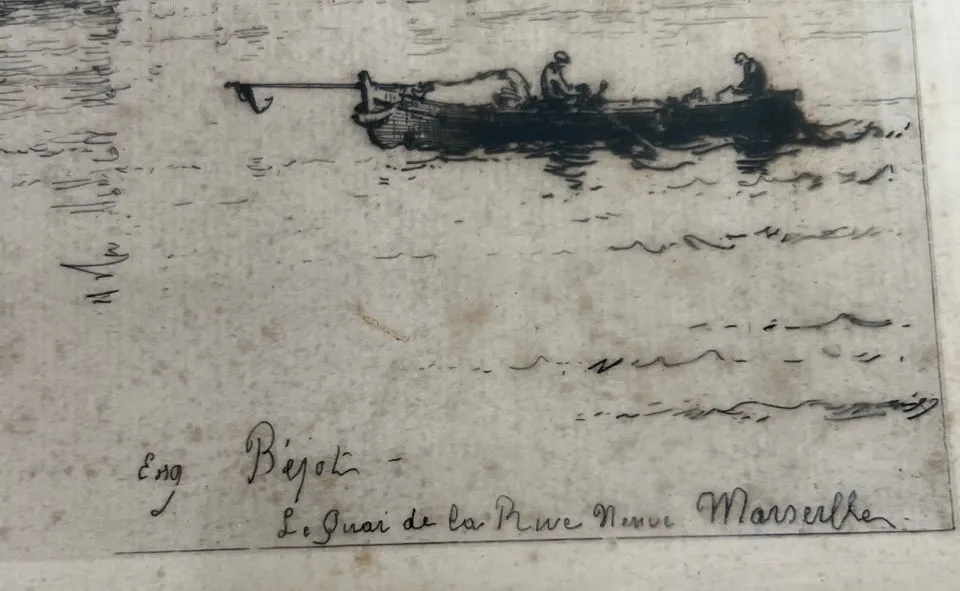 Eug Béjot -
Le Quai de la Rive Neuve Marseille